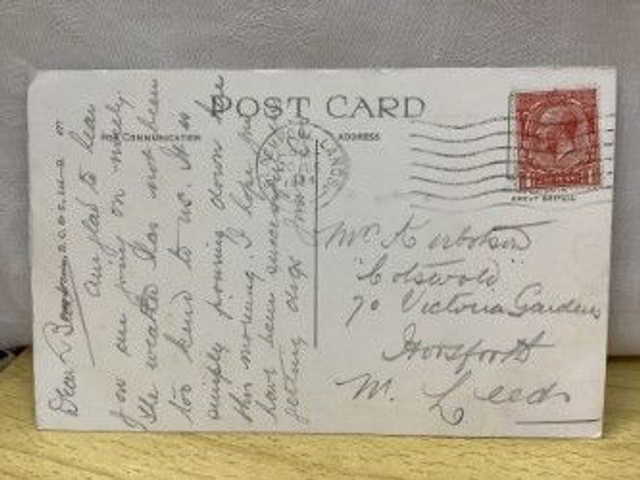 POST CARD
FOR COMMUNICATION
ADDRESS
GREAT BRITAIN
Dear
am glad to hear
you are going on nicely
The weather has not been
too kind to us. It is
simply pouring down here
this morning. I hope you
have been successful
getting digs
Mr
"Cotswold"
70 Victoria Gardens
Horsforth
Nr. Leeds